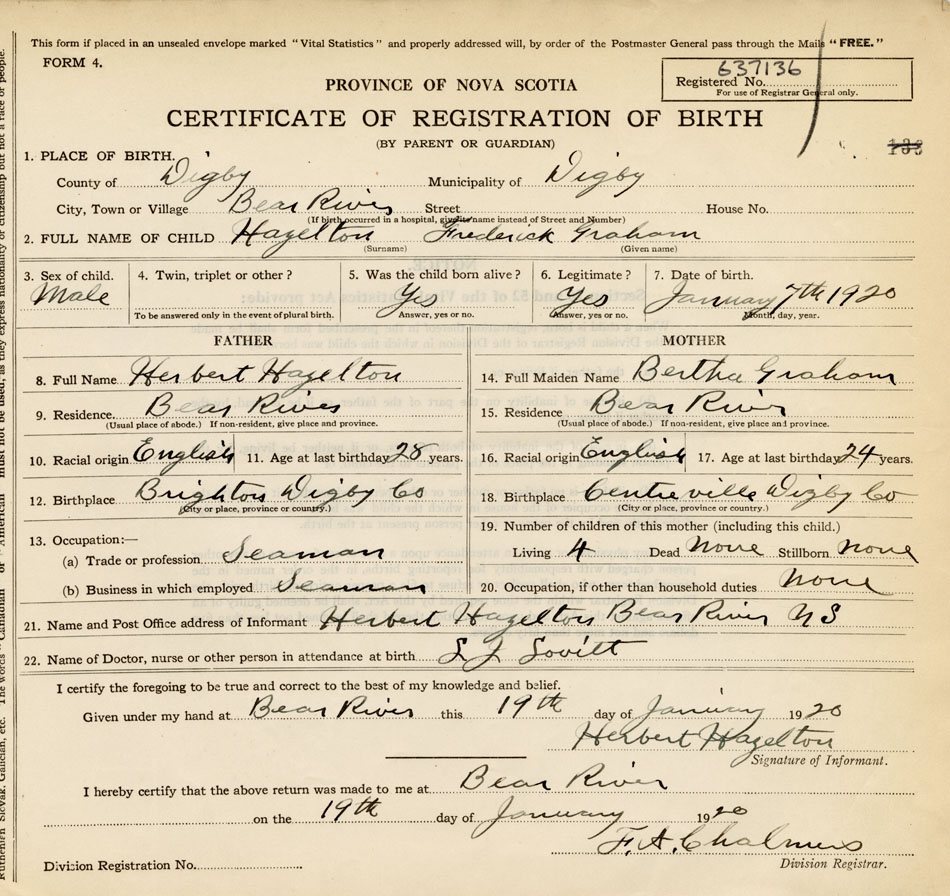 This form if placed in an unsealed envelope marked "Vital Statistics" and properly addressed will, by order of the Postmaster General pass through the Mails "FREE."
FORM 4.
637136
Registered No.
For use of Registrar General only.
PROVINCE OF NOVA SCOTIA
CERTIFICATE OF REGISTRATION OF BIRTH
(BY PARENT OR GUARDIAN)
1. PLACE OF BIRTH.
County of Digby Municipality of Digby
City, Town or Village Bear River Street House No.
(If birth occurred in a hospital, give its name instead of Street and Number)
2. FULL NAME OF CHILD Hazelton Frederick Graham
(Surname) (Given name)
3. Sex of child. 4. Twin, triplet or other? 5. Was the child born alive? 6. Legitimate? 7. Date of birth.
Male Yes Yes January 7th 1920
To be answered only in the event of plural birth. Answer, yes or no. Answer, yes or no. Month, day, year.
FATHER
8. Full Name Herbert Hazelton
9. Residence. Bear River
(Usual place of abode.) If non-resident, give place and province.
10. Racial origin English 11. Age at last birthday 28 years.
12. Birthplace Brighton Digby Co
(City or place, province or country.)
13. Occupation:—
(a) Trade or profession Seaman
(b) Business in which employed Seaman
MOTHER
14. Full Maiden Name Bertha Graham
15. Residence Bear River
(Usual place of abode.) If non-resident, give place and province.
16. Racial origin English 17. Age at last birthday 24 years.
18. Birthplace Centreville Digby Co
(City or place, province or country.)
19. Number of children of this mother (including this child.)
Living 4 Dead None Stillborn none
20. Occupation, if other than household duties None
21. Name and Post Office address of Informant Herbert Hazelton Bear River N S
22. Name of Doctor, nurse or other person in attendance at birth L J Lovitt
I certify the foregoing to be true and correct to the best of my knowledge and belief.
Given under my hand at Bear River this 19th day of January 1920
Herbert Hazelton
Signature of Informant.
I hereby certify that the above return was made to me at Bear River
on the 19th day of January 1920
F. A. Chalmers
Division Registrar.
Division Registration No.